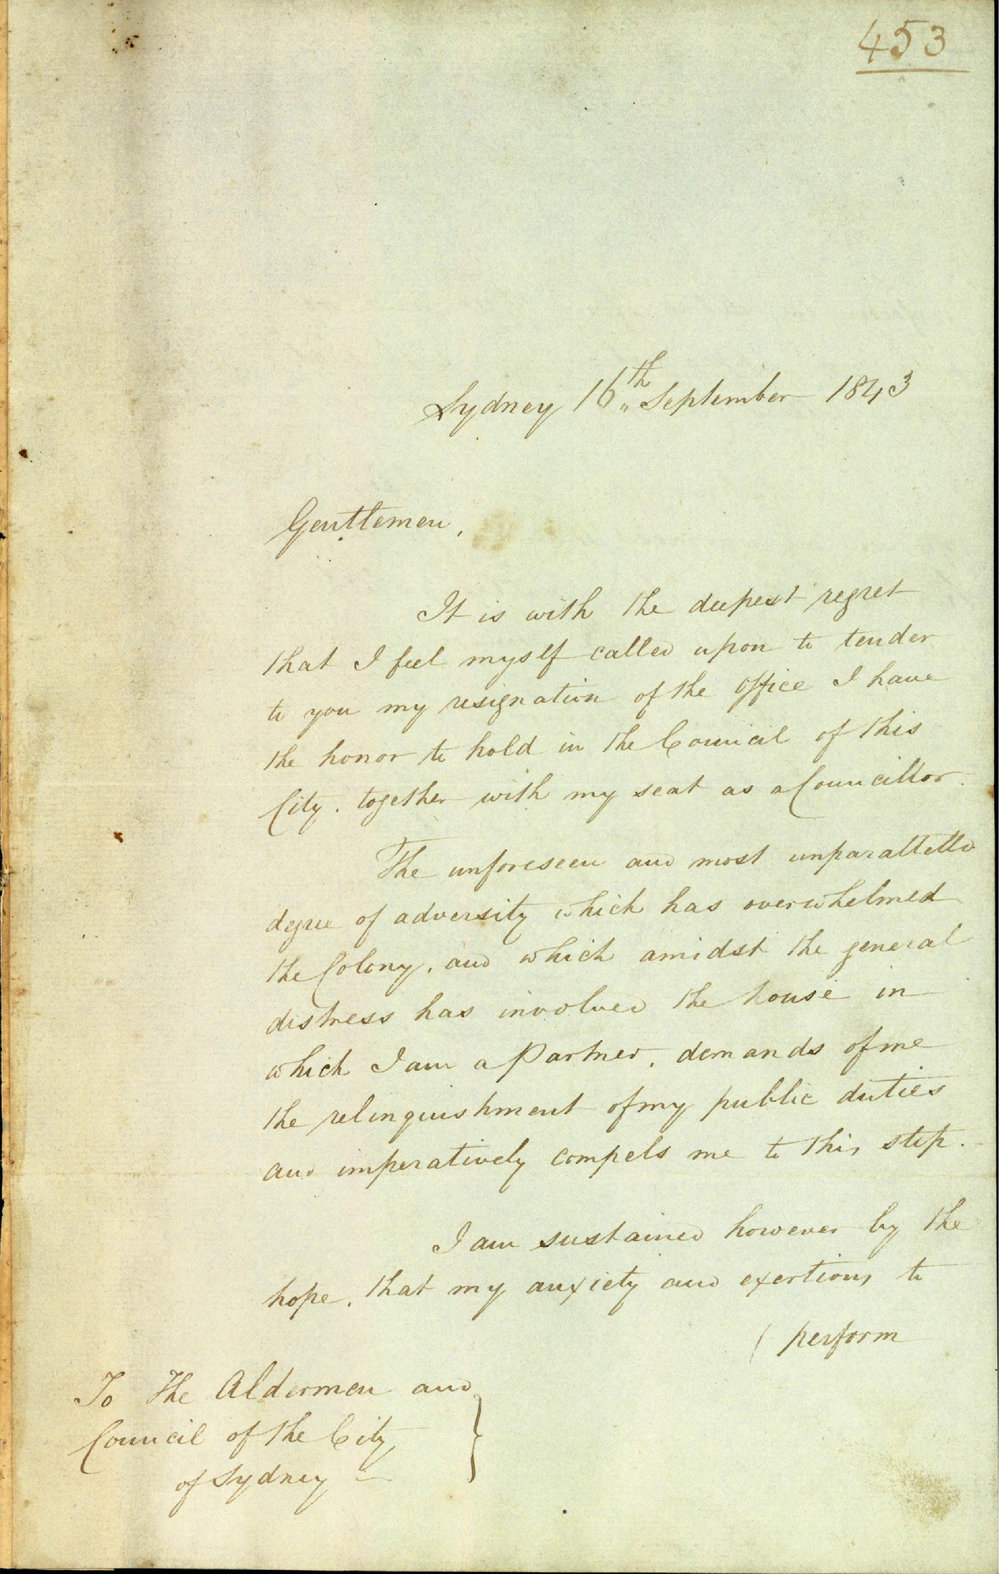 453
Sydney 16th September 1843
Gentlemen,
It is with the deepest regret
that I feel myself called upon to tender
to you my resignation of the office I have
the honor to hold in the Council of this
City. together with my seat as a Councillor.
The unforeseen and most unparalleled
degree of adversity which has overwhelmed
the Colony, and which amidst the general
distress has involved the house in
which I am a Partner, demands of me
the relinquishment of my public duties
and imperatively compels me to this step.
I am sustained however by the
hope, that my anxiety and exertions to
( perform
To The Aldermen and
Council of the City
of Sydney